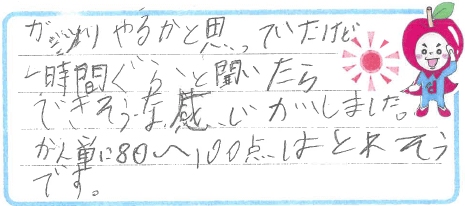 ガッツリやるかと思っていたけど
一時間ぐらいと聞いたら
できそうな感じがしました。
かん単に80〜100点はとれそう
です。